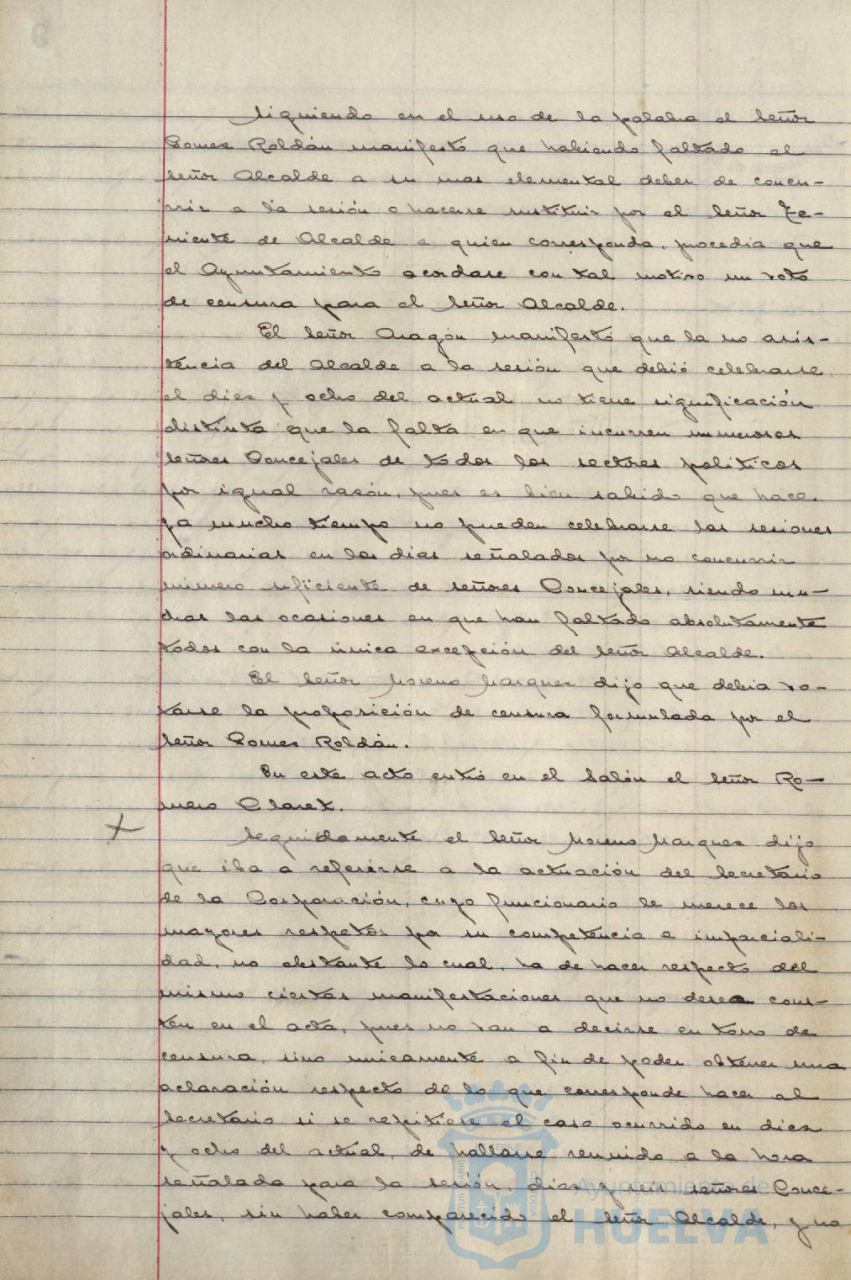 Siguiendo en el uso de la palabra el Señor
Gomez Roldán manifestó que habiendo faltado el
Señor Alcalde a su mas elemental deber de concu-
rrir a la sesión o hacerse sustituir por el Señor Te-
niente de Alcalde a quien corresponda, procedia que
el Ayuntamiento acordase con tal motivo un voto
de censura para el Señor Alcalde.
El Señor Aragón manifestó que la no asis-
tencia del Alcalde a la sesión que debió celebrarse
el diez y ocho del actual no tiene significación
distinta que la falta en que incurren numerosos
Señores Concejales de todos los sectores politicos
por igual razón, pues es bien sabido que hace
ya mucho tiempo no pueden celebrarse las sesiones
ordinarias en los dias señalados por no concurrir
número suficiente de señores Concejales, siendo mu-
chas las ocasiones en que han faltado absolutamente
todos con la única excepción del Señor Alcalde.
El Señor Moreno Marquez dijo que debia vo-
tarse la proposición de censura formulada por el
Señor Gomez Roldán.
En este acto entró en el Salón el Señor Ro-
mero Claret.
Seguidamente el Señor Moreno Marquez dijo
que iba a referirse a la actuación del Secretario
de la Corporación, cuyo funcionario le merece los
mayores respetos por su competencia e imparciali-
dad, no obstante lo cual, ha de hacer respecto del
mismo ciertas manifestaciones que no desea cons-
ten en el acta, pues no van a decirse en tono de
censura, sino unicamente a fin de poder obtener una
aclaración respecto de lo que corresponde hacer al
Secretario si se repitiese el caso ocurrido en diez
y ocho del actual, de hallarse reunido a la hora
señalada para la sesión, diez y seis señores Conce-
jales, sin haber comparecido el Señor Alcalde, y no
Ayuntamiento de
HUELVA